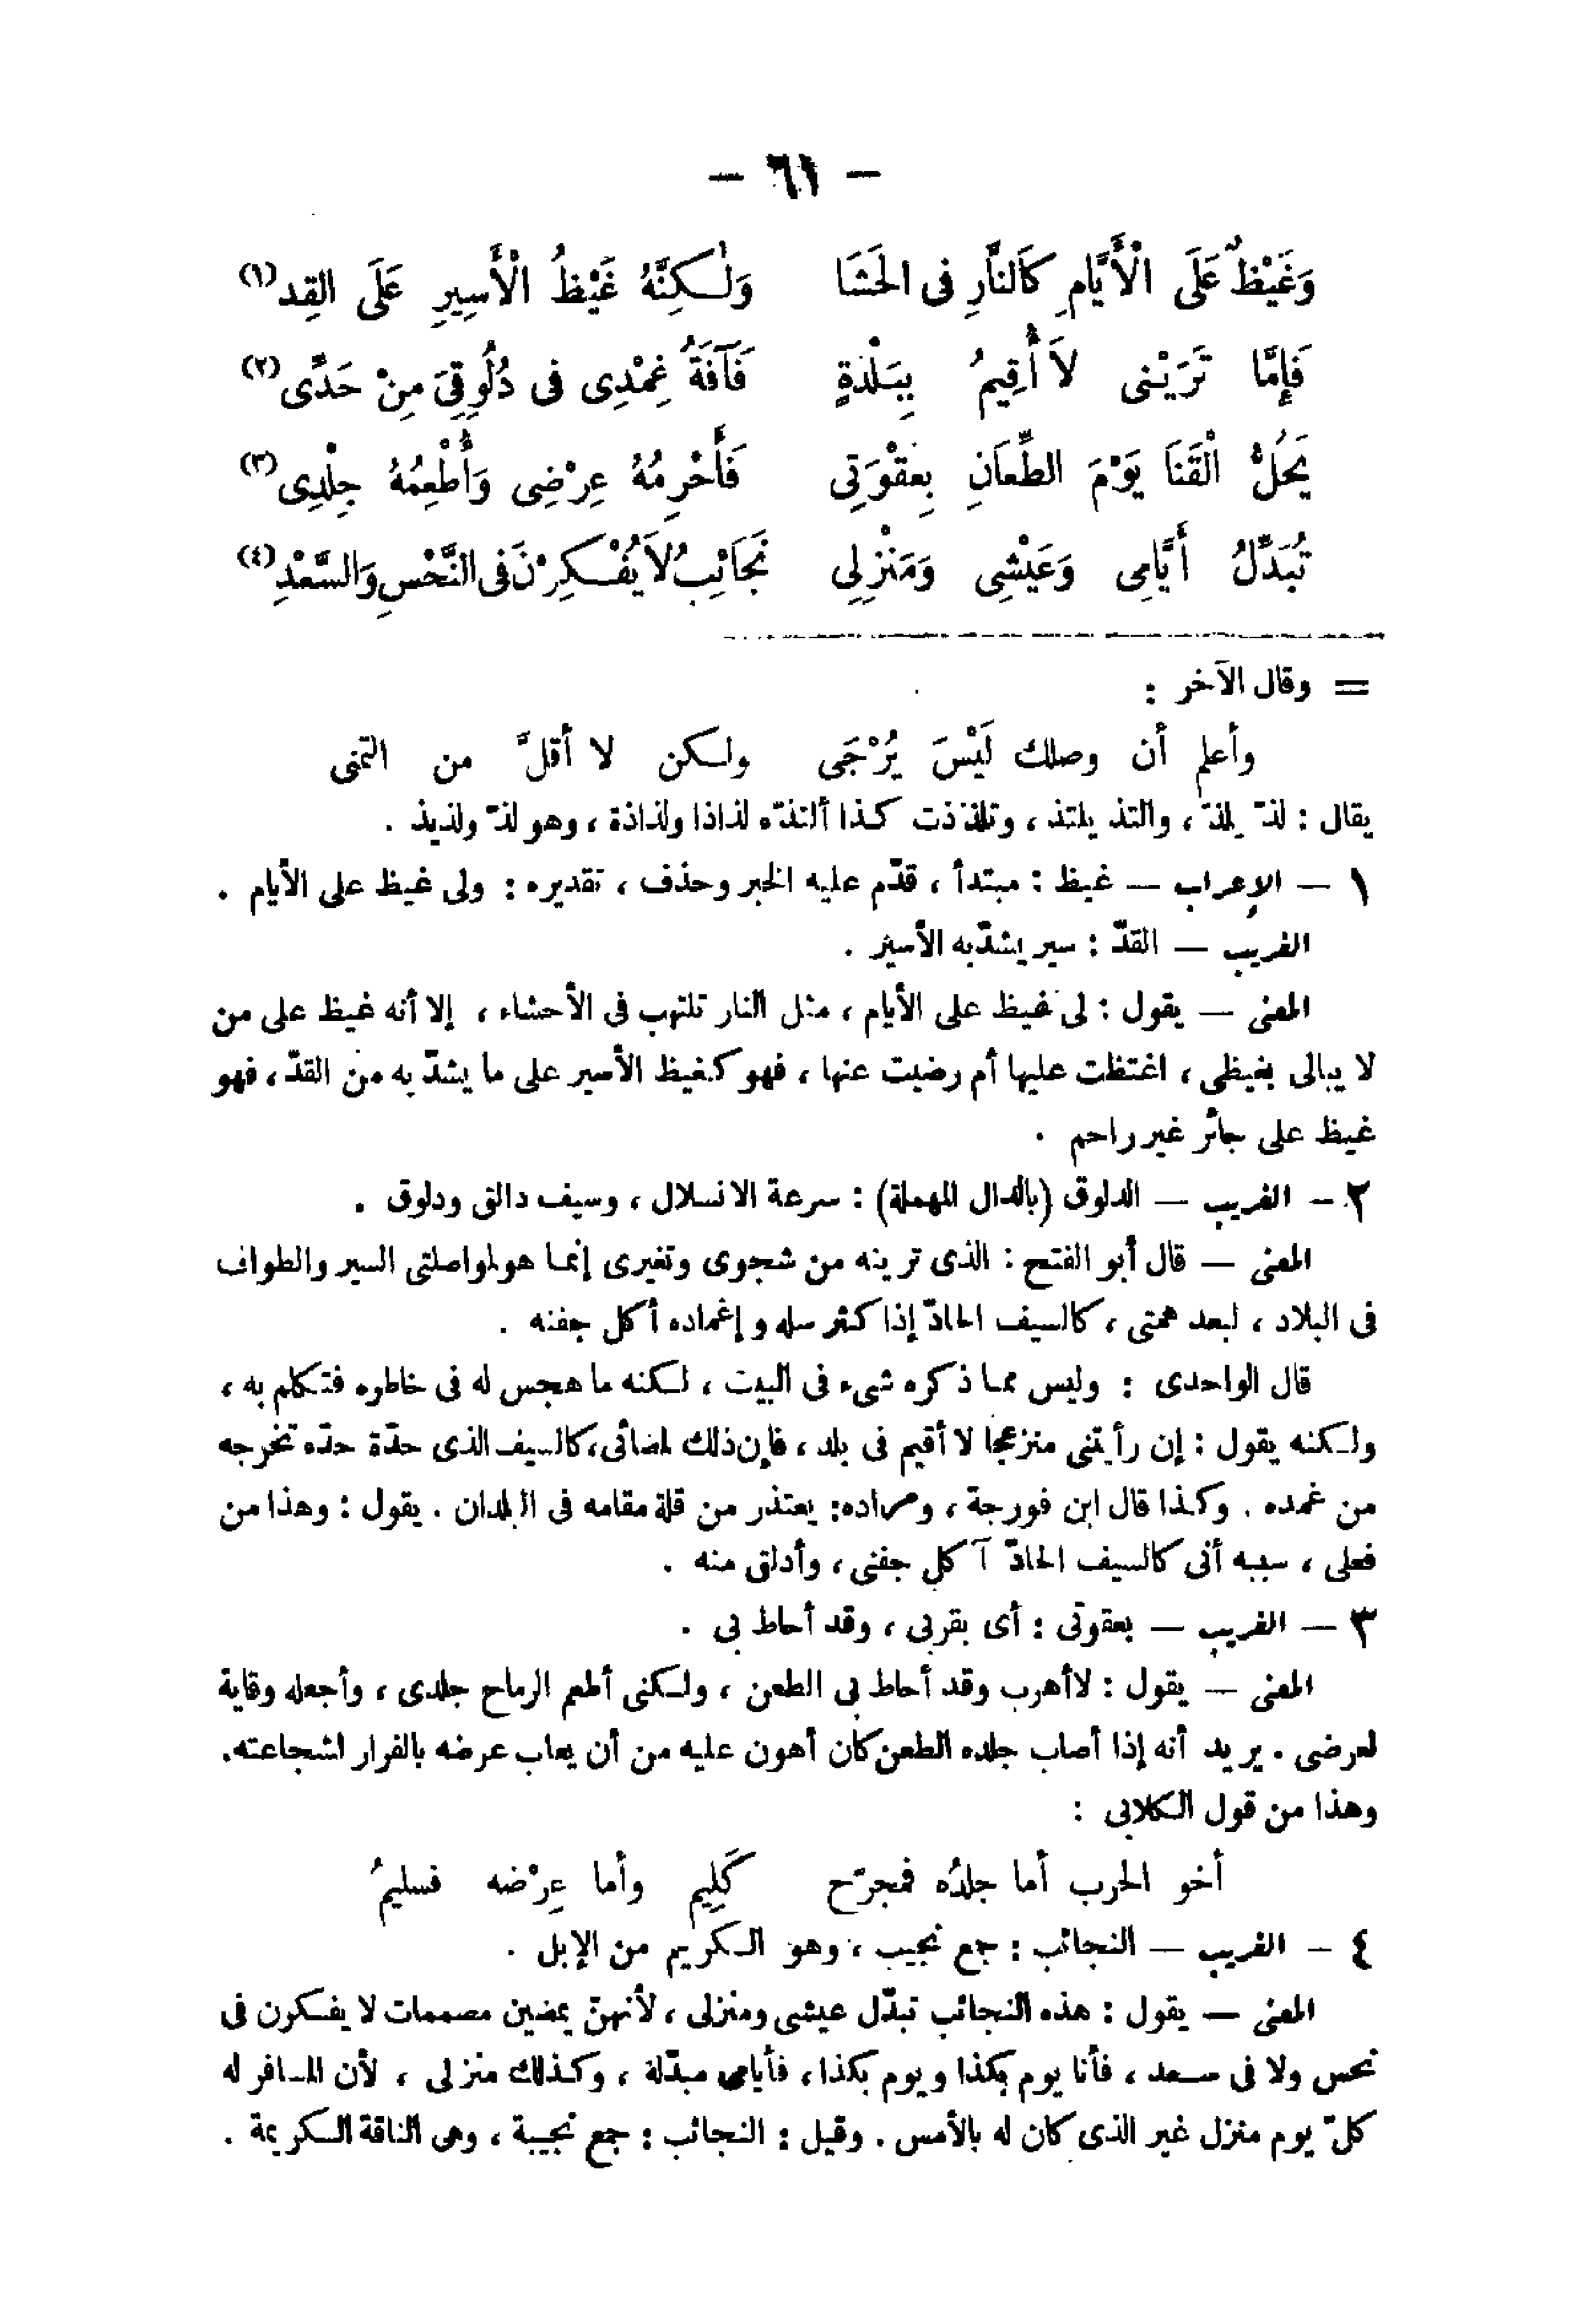 — ٦١ —
وَغَيْظٌ عَلَى الْأَيَّامِ كَالنَّارِ فى الحَشَا وَلٰكِنَّهُ غَيْظُ الْأَسِيرِ عَلَى القِد (١)
فَإِمَّا تَرَيْنى لاَ أُقِيمُ بِبَلْدَةٍ فَآفَةُ غِمْدِى فى دُلُوقِىَ مِنْ حَدِّى (٢)
يَحُلُّ الْقَنَا يَوْمَ الطِّعَانِ بِعَقْوَتِى فَأَحْرِمُهُ عِرْضِى وَأُطْعِمُهُ جِلْدِى (٣)
تُبَدِّلُ أَيَّامِى وَعَيْشِى وَمَنْزِلِى نَجَائِبُ لاَ يُفْكِرْنَ فى النَّحْسِ وَالسَّعْدِ (٤)
= وقال الآخر :
وأعلم أن وصلك لَيْسَ يُرْجَى ولكن لا أقلَّ من التمنى
يقال : لذّ يلذّ ، والتذ يلتذ ، وتلذذت كذا ألتذّه لذاذا ولذاذة ، وهو لذّ ولذيذ .
١ — الإعراب — غيظ : مبتدأ ، قدّم عليه الخبر وحذف ، تقديره : ولى غيظ على الأيام .
الغريب — القدّ : سير يشدّ به الأسير .
المعنى — يقول : لى غيظ على الأيام ، مثل النار تلتهب فى الأحشاء ، إلا أنه غيظ على من
لا يبالى بغيظى ، اغتظت عليها أم رضيت عنها ، فهو كغيظ الأسير على ما يشدّ به من القدّ ، فهو
غيظ على جائر غير راحم .
٢ - الغريب — الدلوق (بالدال المهملة) : سرعة الانسلال ، وسيف دالق ودلوق .
المعنى — قال أبو الفتح : الذى ترينه من شجوى وتغيرى إنما هو لمواصلتى السير والطواف
فى البلاد ، لبعد همتى ، كالسيف الحادّ إذا كثر سله وإغماده أكل جفنه .
قال الواحدى : وليس مما ذكره شىء فى البيت ، لكنه ما هجس له فى خاطره فتكلم به ،
ولكنه يقول : إن رأيتنى منزعجا لا أقيم فى بلد ، فإن ذلك لمضائى ، كالسيف الذى حدّة حدّه تخرجه
من غمده . وكذا قال ابن فورجة ، ومراده : يعتذر من قلة مقامه فى البلدان . يقول : وهذا من
فعلى ، سببه أنى كالسيف الحادّ آكل جفنى ، وأدلق منه .
٣ — الغريب — بعقوتى : أى بقربى ، وقد أحاط بى .
المعنى — يقول : لا أهرب وقد أحاط بى الطعن ، ولكنى أطعم الرماح جلدى ، وأجعله وقاية
لعرضى . يريد أنه إذا أصاب جلده الطعن كان أهون عليه من أن يعاب عرضه بالفرار لشجاعته .
وهذا من قول الكلابى :
أخو الحرب أما جلدُه فمجرّح كَلِيم وأما عِرْضه فسليمُ
٤ - الغريب — النجائب : جمع نجيب ، وهو الكريم من الإبل .
المعنى — يقول : هذه النجائب تبدّل عيشى ومنزلى ، لأنهنّ يمضين مصممات لا يفكرون فى
نحس ولا فى سعد ، فأنا يوم بكذا ويوم بكذا ، فأيامى مبدّلة ، وكذلك منزلى ، لأن المسافر له
كلّ يوم منزل غير الذى كان له بالأمس . وقيل : النجائب : جمع نجيبة ، وهى الناقة الكريمة .